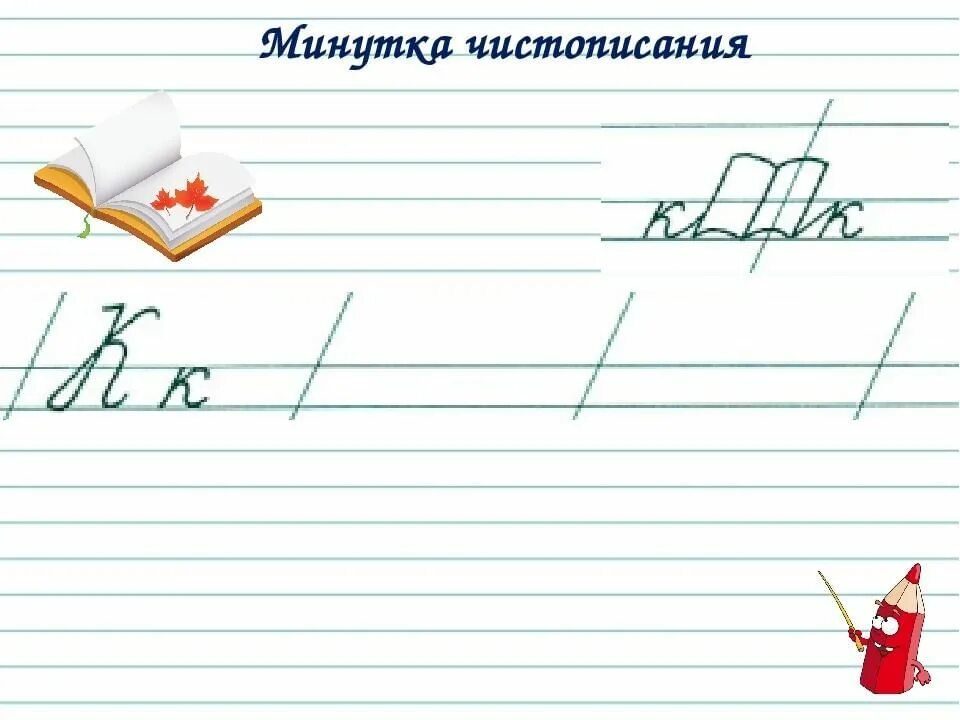 Минутка чистописания
к к
К к